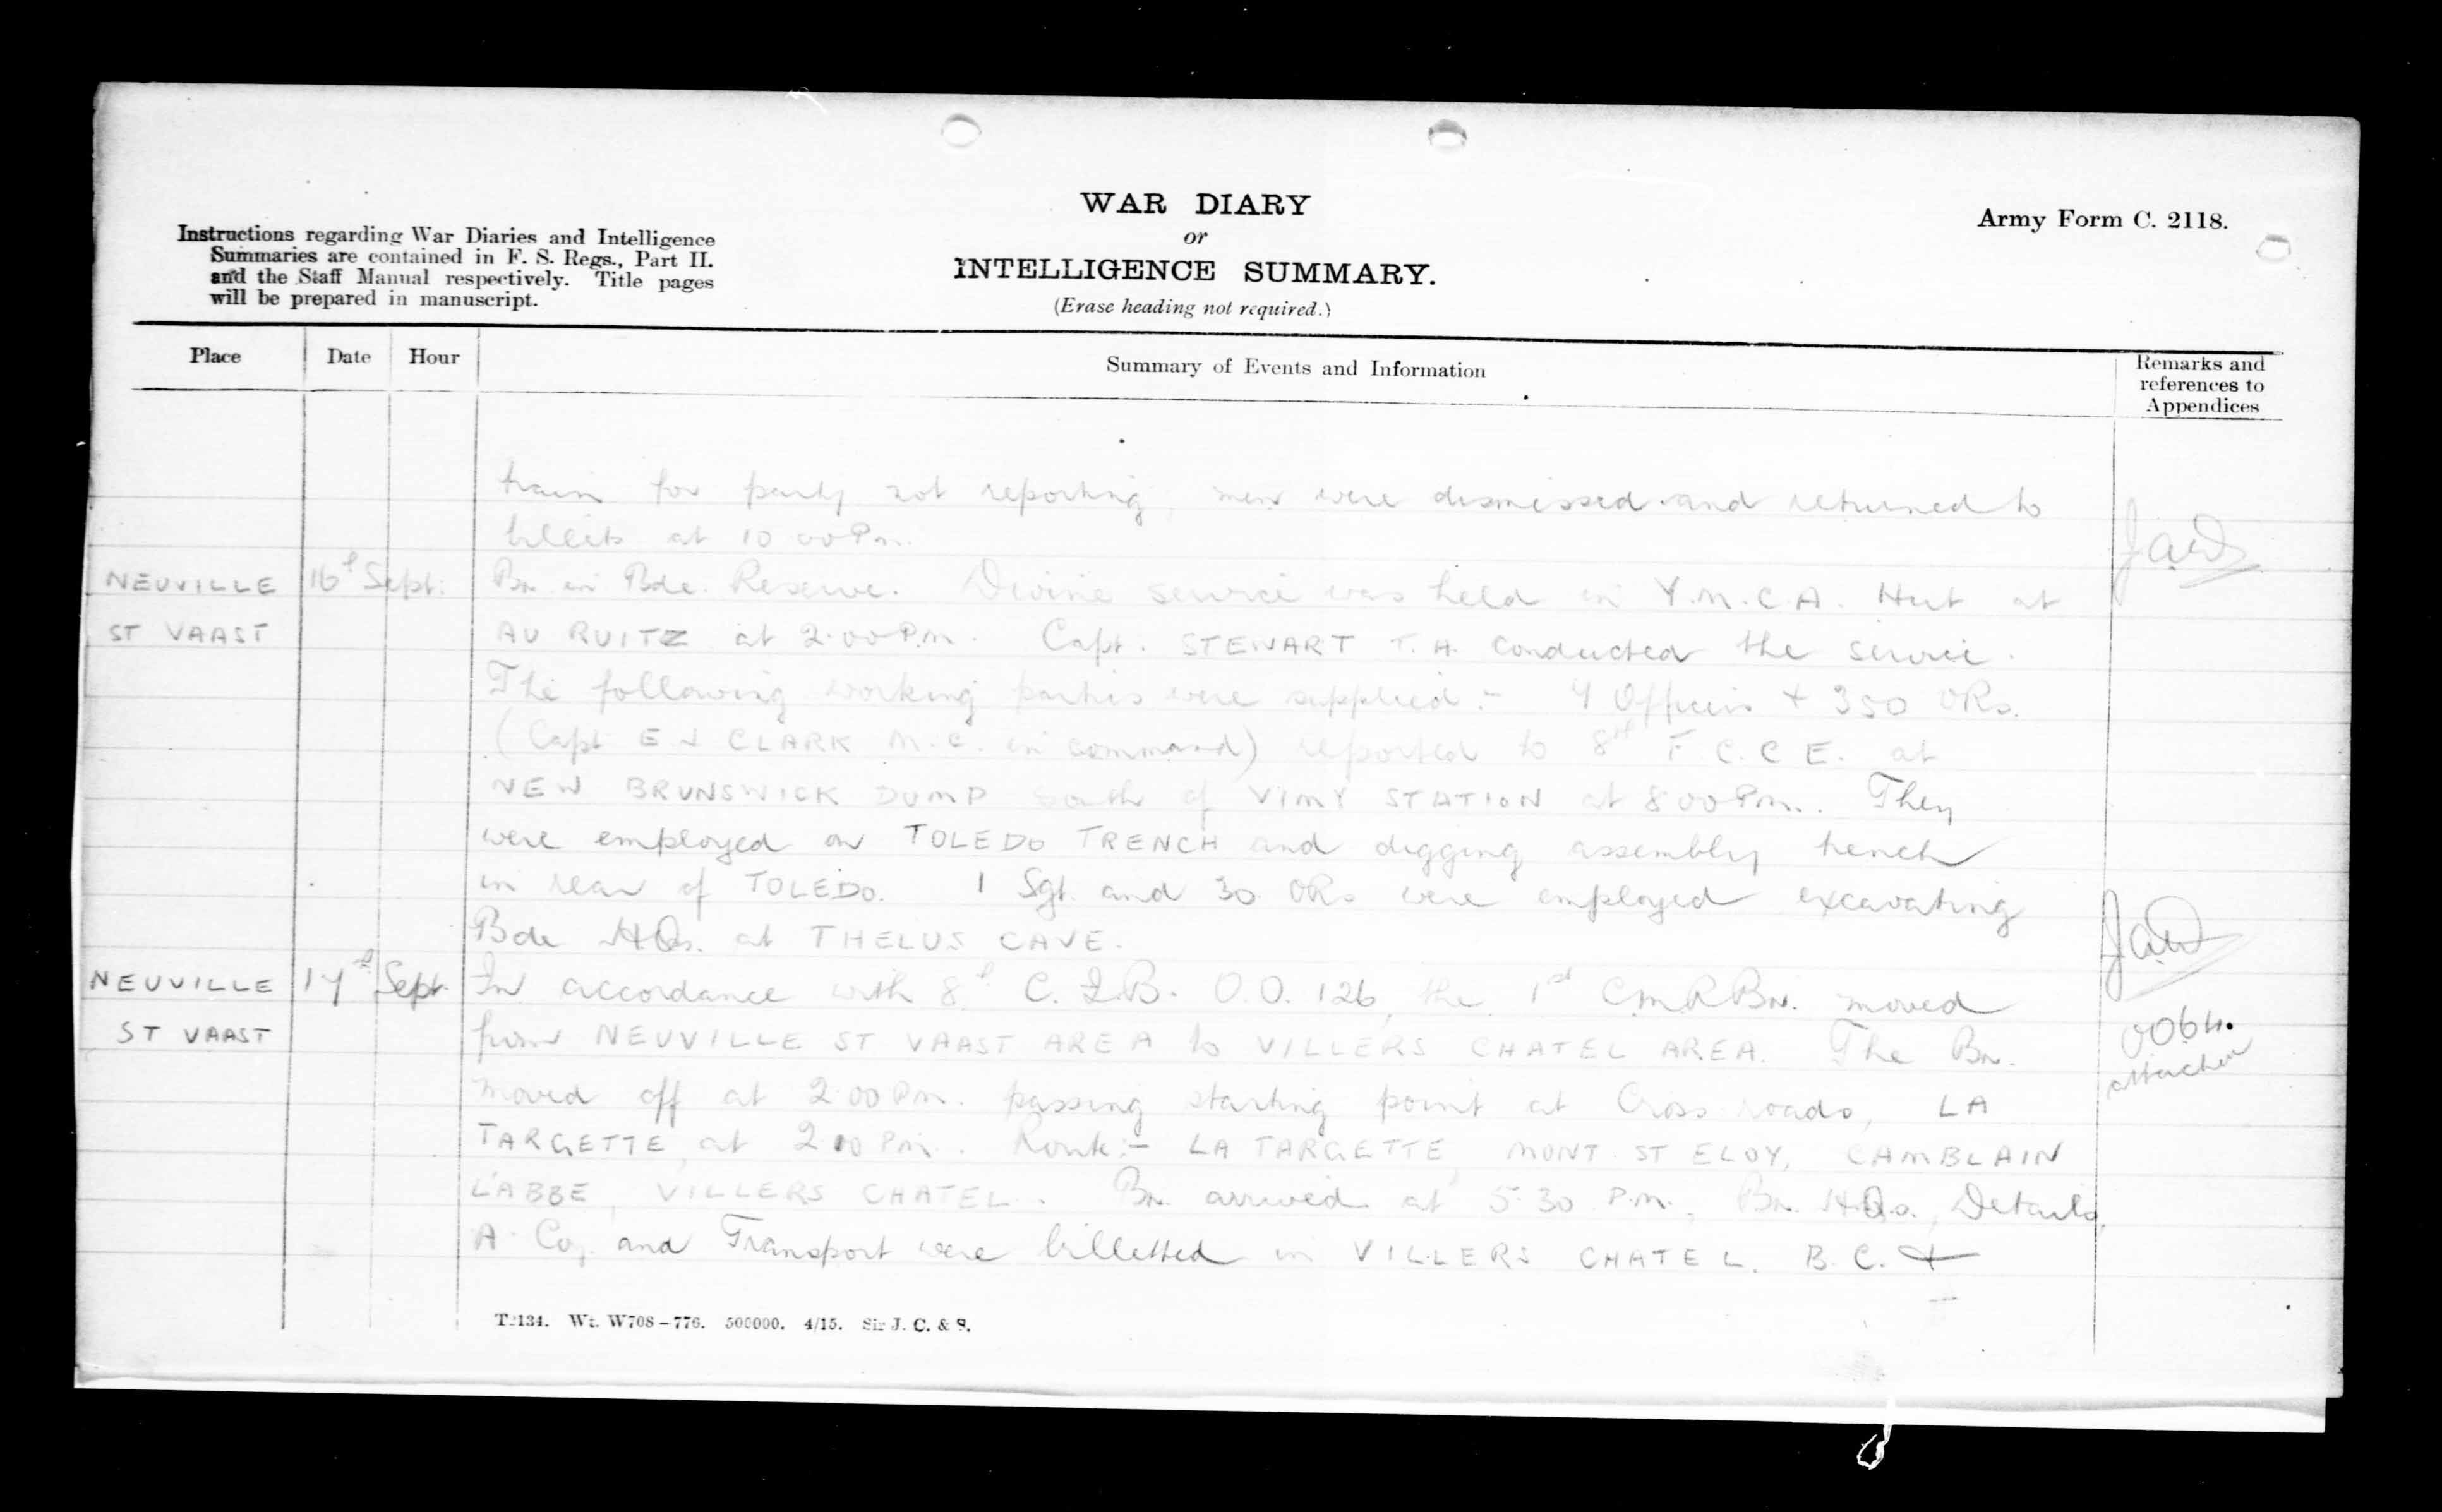 WAR DIARY
or
INTELLIGENCE SUMMARY.
(Erase heading not required.)
Army Form C. 2118.
Instructions regarding War Diaries and Intelligence
Summaries are contained in F. S. Regs., Part II.
and the Staff Manual respectively. Title pages
will be prepared in manuscript.
Place Date Hour Summary of Events and Information Remarks and
references to
Appendices
train for party not reporting, men were dismissed and returned to
billets at 10 00 P.m.
NEUVILLE 16th Sept. Bn. in Bde. Reserve. Divine service was held in Y.M.C.A. Hut at
ST VAAST AU RUITZ at 2.00 P.m. Capt. STEWART T. H. conducted the service.
The following working parties were supplied:- 4 Officers + 350 ORs.
(Capt E J CLARK M.C. in command) reported to 8th F. C. C E. at
NEW BRUNSWICK DUMP south of VIMY STATION at 8 00 P.m. They
were employed on TOLEDO TRENCH and digging assembly trench
in rear of TOLEDO. 1 Sgt. and 30 ORs were employed excavating
Bde HQs. at THELUS CAVE.
NEUVILLE 17th Sept. In accordance with 8th C.I.B. O.O. 126, the 1st CMRBn. moved
ST VAAST from NEUVILLE ST VAAST AREA to VILLERS CHATEL AREA. The Bn.
moved off at 2 00 P.m. passing starting point at Cross roads, LA
TARGETTE, at 2 10 P.m. Route:- LA TARGETTE, MONT ST ELOY, CAMBLAIN
L'ABBE, VILLERS CHATEL. Bn. arrived at 5.30 P.m., Bn. HQs., Details,
A Coy. and Transport were billetted in VILLERS CHATEL. B. C. +
attached
T2134. Wt. W708-776. 500000. 4/15. Sir J. C. & S.